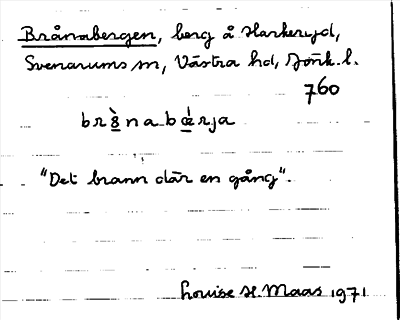 Brånabergen, berg å Harkeryd,
Svenarums sn, Västra hd, Jönk. l.
760
br8̀nabæ̀rja
"Det brann där en gång".
Louise H. Maas 1971